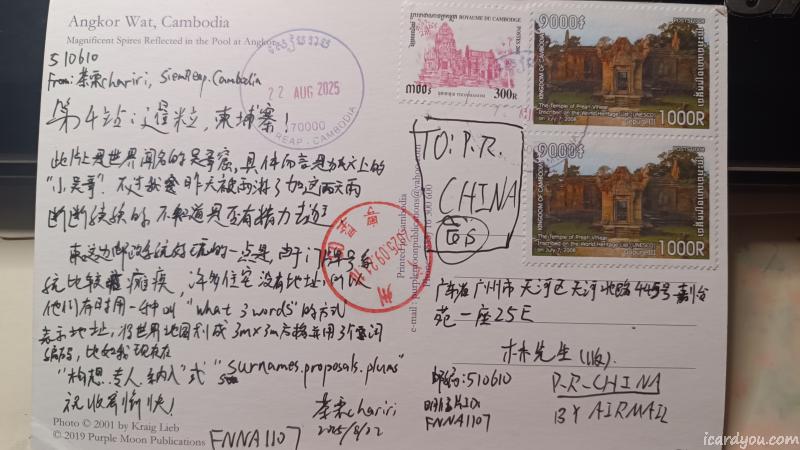 Angkor Wat, Cambodia
Magnificent Spires Reflected in the Pool at Angkor
510610
From: 茶栗chariri, SiemReap, Cambodia
第4站:暹粒,柬埔寨!
此片上是世界闻名的吴哥窟,具体而言是
"小吴哥"。不过我昨天被雨淋了加这两天雨
断断续续的,不知道是否有精力去
柬这边邮政系统好玩的一点是,由于门牌号系
统比较瘫痪,许多住宅没有地址,所以
他们有时用一种叫"what 3 words"的方式
表示地址,将世界地图划成3m×3m方格并用3个单词
编码,比如我现在在
"构想.专人.纳入"或"surnames.proposals.plums"
祝收到愉快!
茶栗chariri
2025/8/22
FNNA1107
Photo © 2001 by Kraig Lieb
© 2019 Purple Moon Publications
22 AUG 2025
ROYAUME DU CAMBODGE
300R
KINGDOM OF CAMBODIA
POSTES 2008
The Temple of Preah Vihear
Inscribed on the World Heritage List (UNESCO)
on July 7, 2008
1000R
KINGDOM OF CAMBODIA
The Temple of Preah Vihear
Inscribed on the World Heritage List (UNESCO)
on July 7, 2008
1000R
TO: P.R.
CHINA
Printed in Cambodia
e-mail : purplemoonpublications@yahoo.com
广东省广州市天河区天河北路445号
苑一座25E
林先生(收)
邮编:510610
P.R.CHINA
明信片ID:
BY AIRMAIL
FNNA1107
icardyou.com